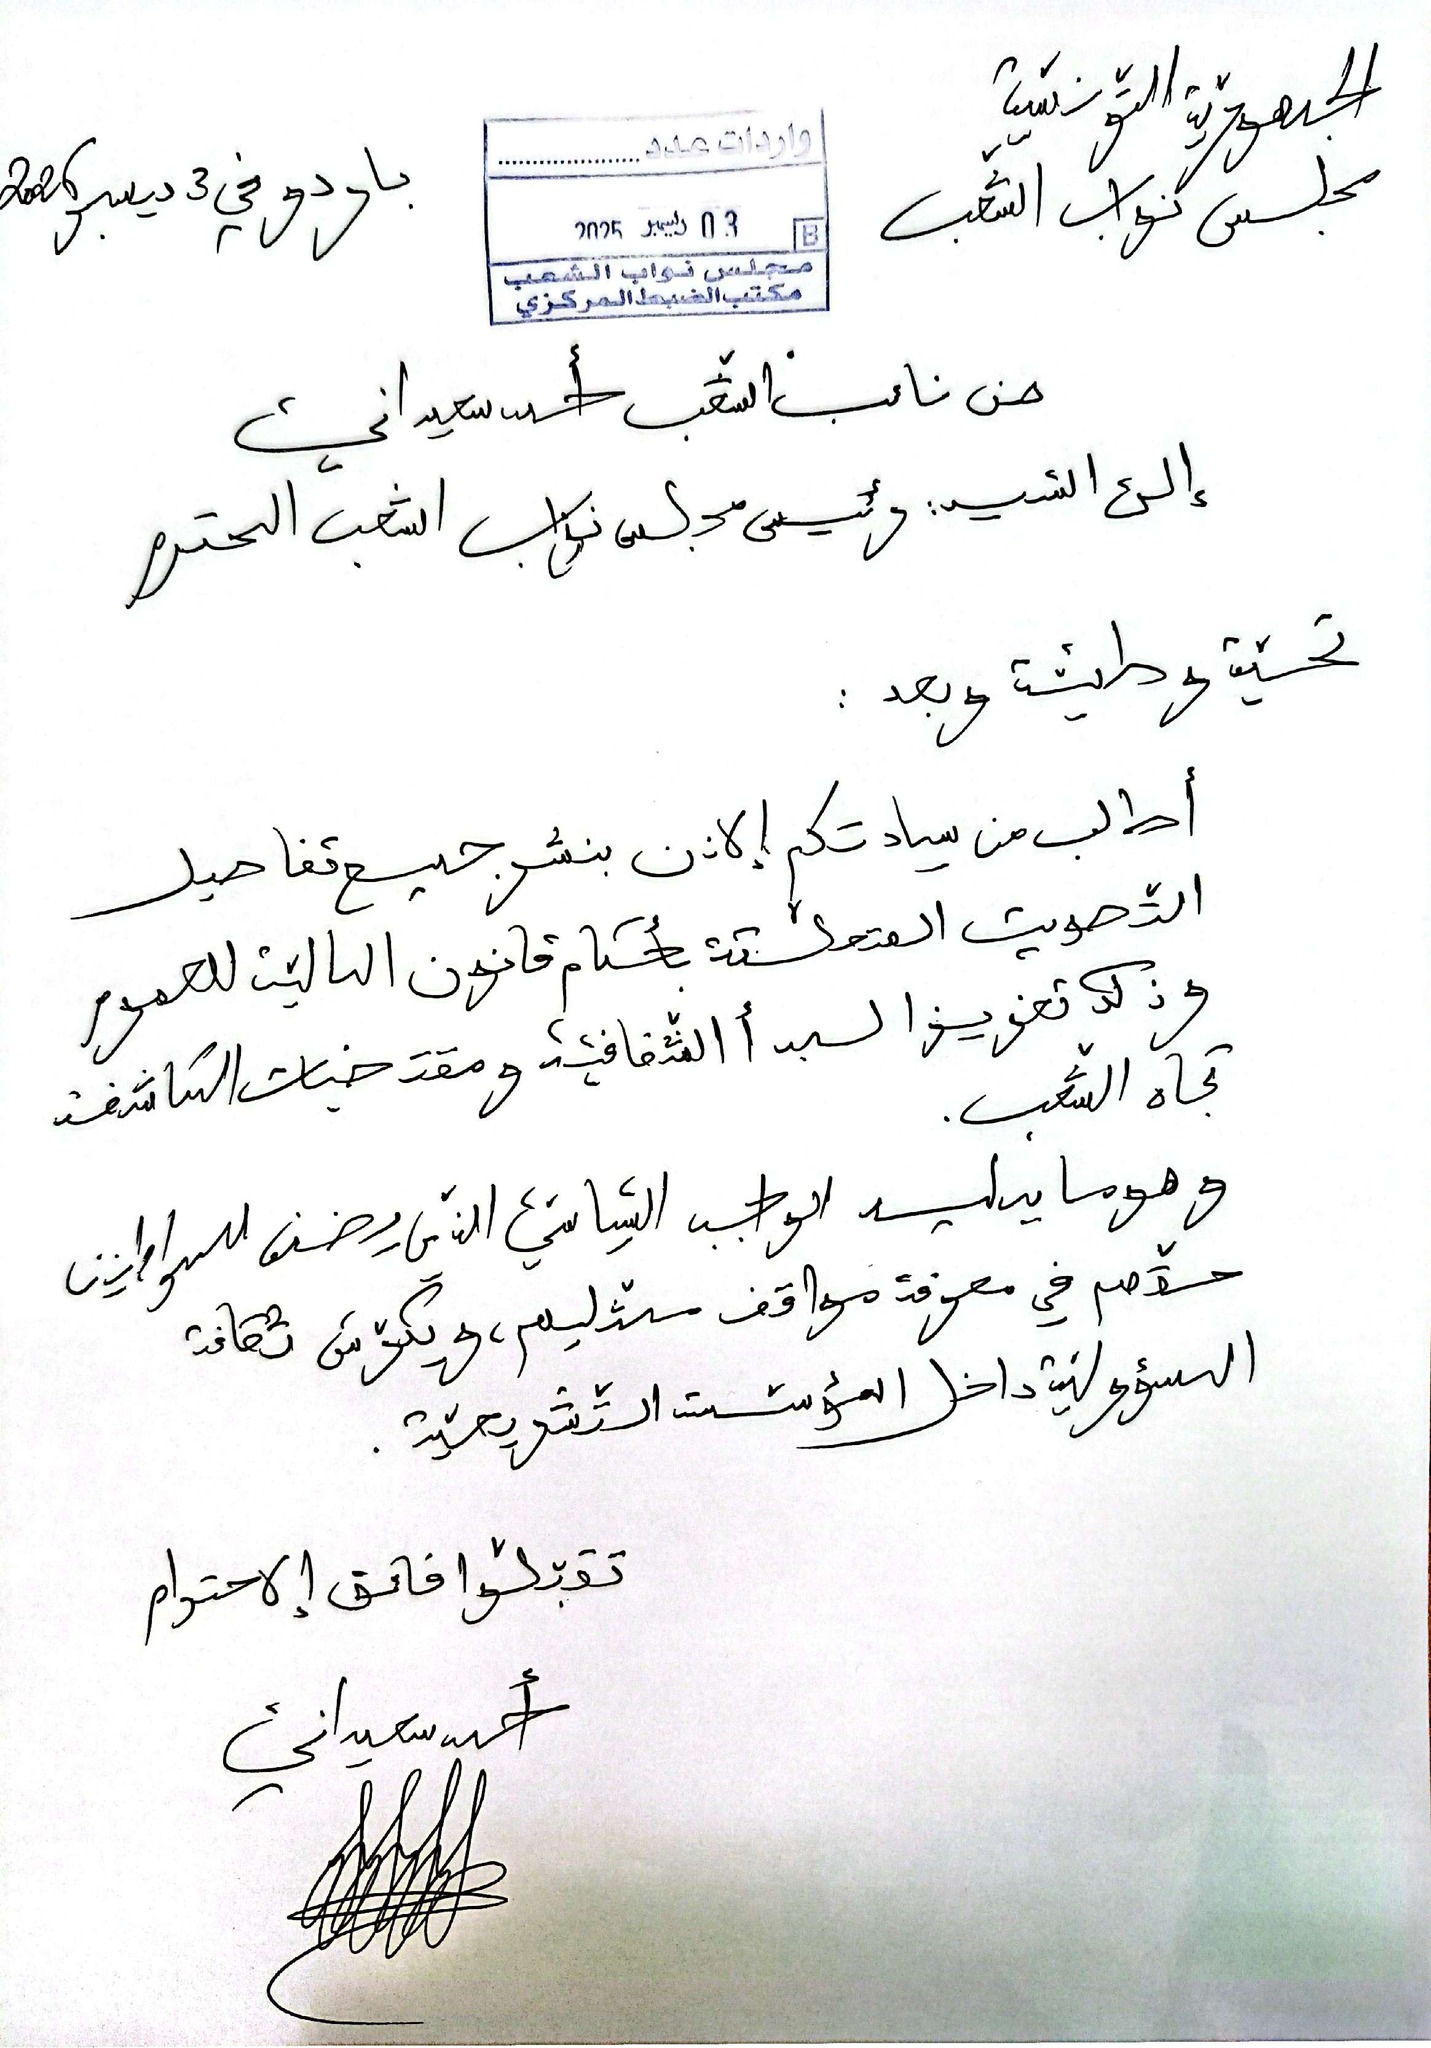 الجمهوريّة التّونسيّة
مجلس نواب الشّعب
باردو في 3 ديسمبر 2025
واردات عدد
03 ديسمبر 2025
B
مجلس نواب الشعب
مكتب الضبط المركزي
من نائب الشّعب أحمد سعيداني
إلى السّيد: رئيس مجلس نواب الشّعب المحترم
تحيّة وطنيّة وبعد :
أطالب من سيادتكم إلاذن بنشر جميع تفاصيل
التّصويت المتعلّقة بأحكام قانون الماليّة للعموم
وذلك تعزيزا لمبدأ الشّفافيّة ومقتضيات المكاشفة
تجاه الشّعب.
وهو ما يمليه الواجب السّياسي الذّي يضمن للمواطنين
حقّهم في معرفة مواقف ممثّليهم، ويكرّس ثقافة
المسؤوليّة داخل المؤسّسة التّشريعيّة .
تقبّلوا فائق إلاحترام
أحمد سعيداني